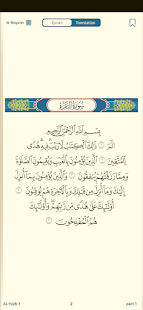 Al-Baqarah
Quran
Translation
سورة البقرة
بسم الله الرحمن الرحيم
الم ١ ذلك الكتاب لا ريب فيه هدى
للمتقين ٢ الذين يؤمنون بالغيب ويقيمون الصلوة
ومما رزقنهم ينفقون ٣ والذين يؤمنون بما أنزل
إليك وما أنزل من قبلك وبالآخرة هم يوقنون ٤
أولئك على هدى من ربهم وأولئك
هم المفلحون ٥
2
part 1